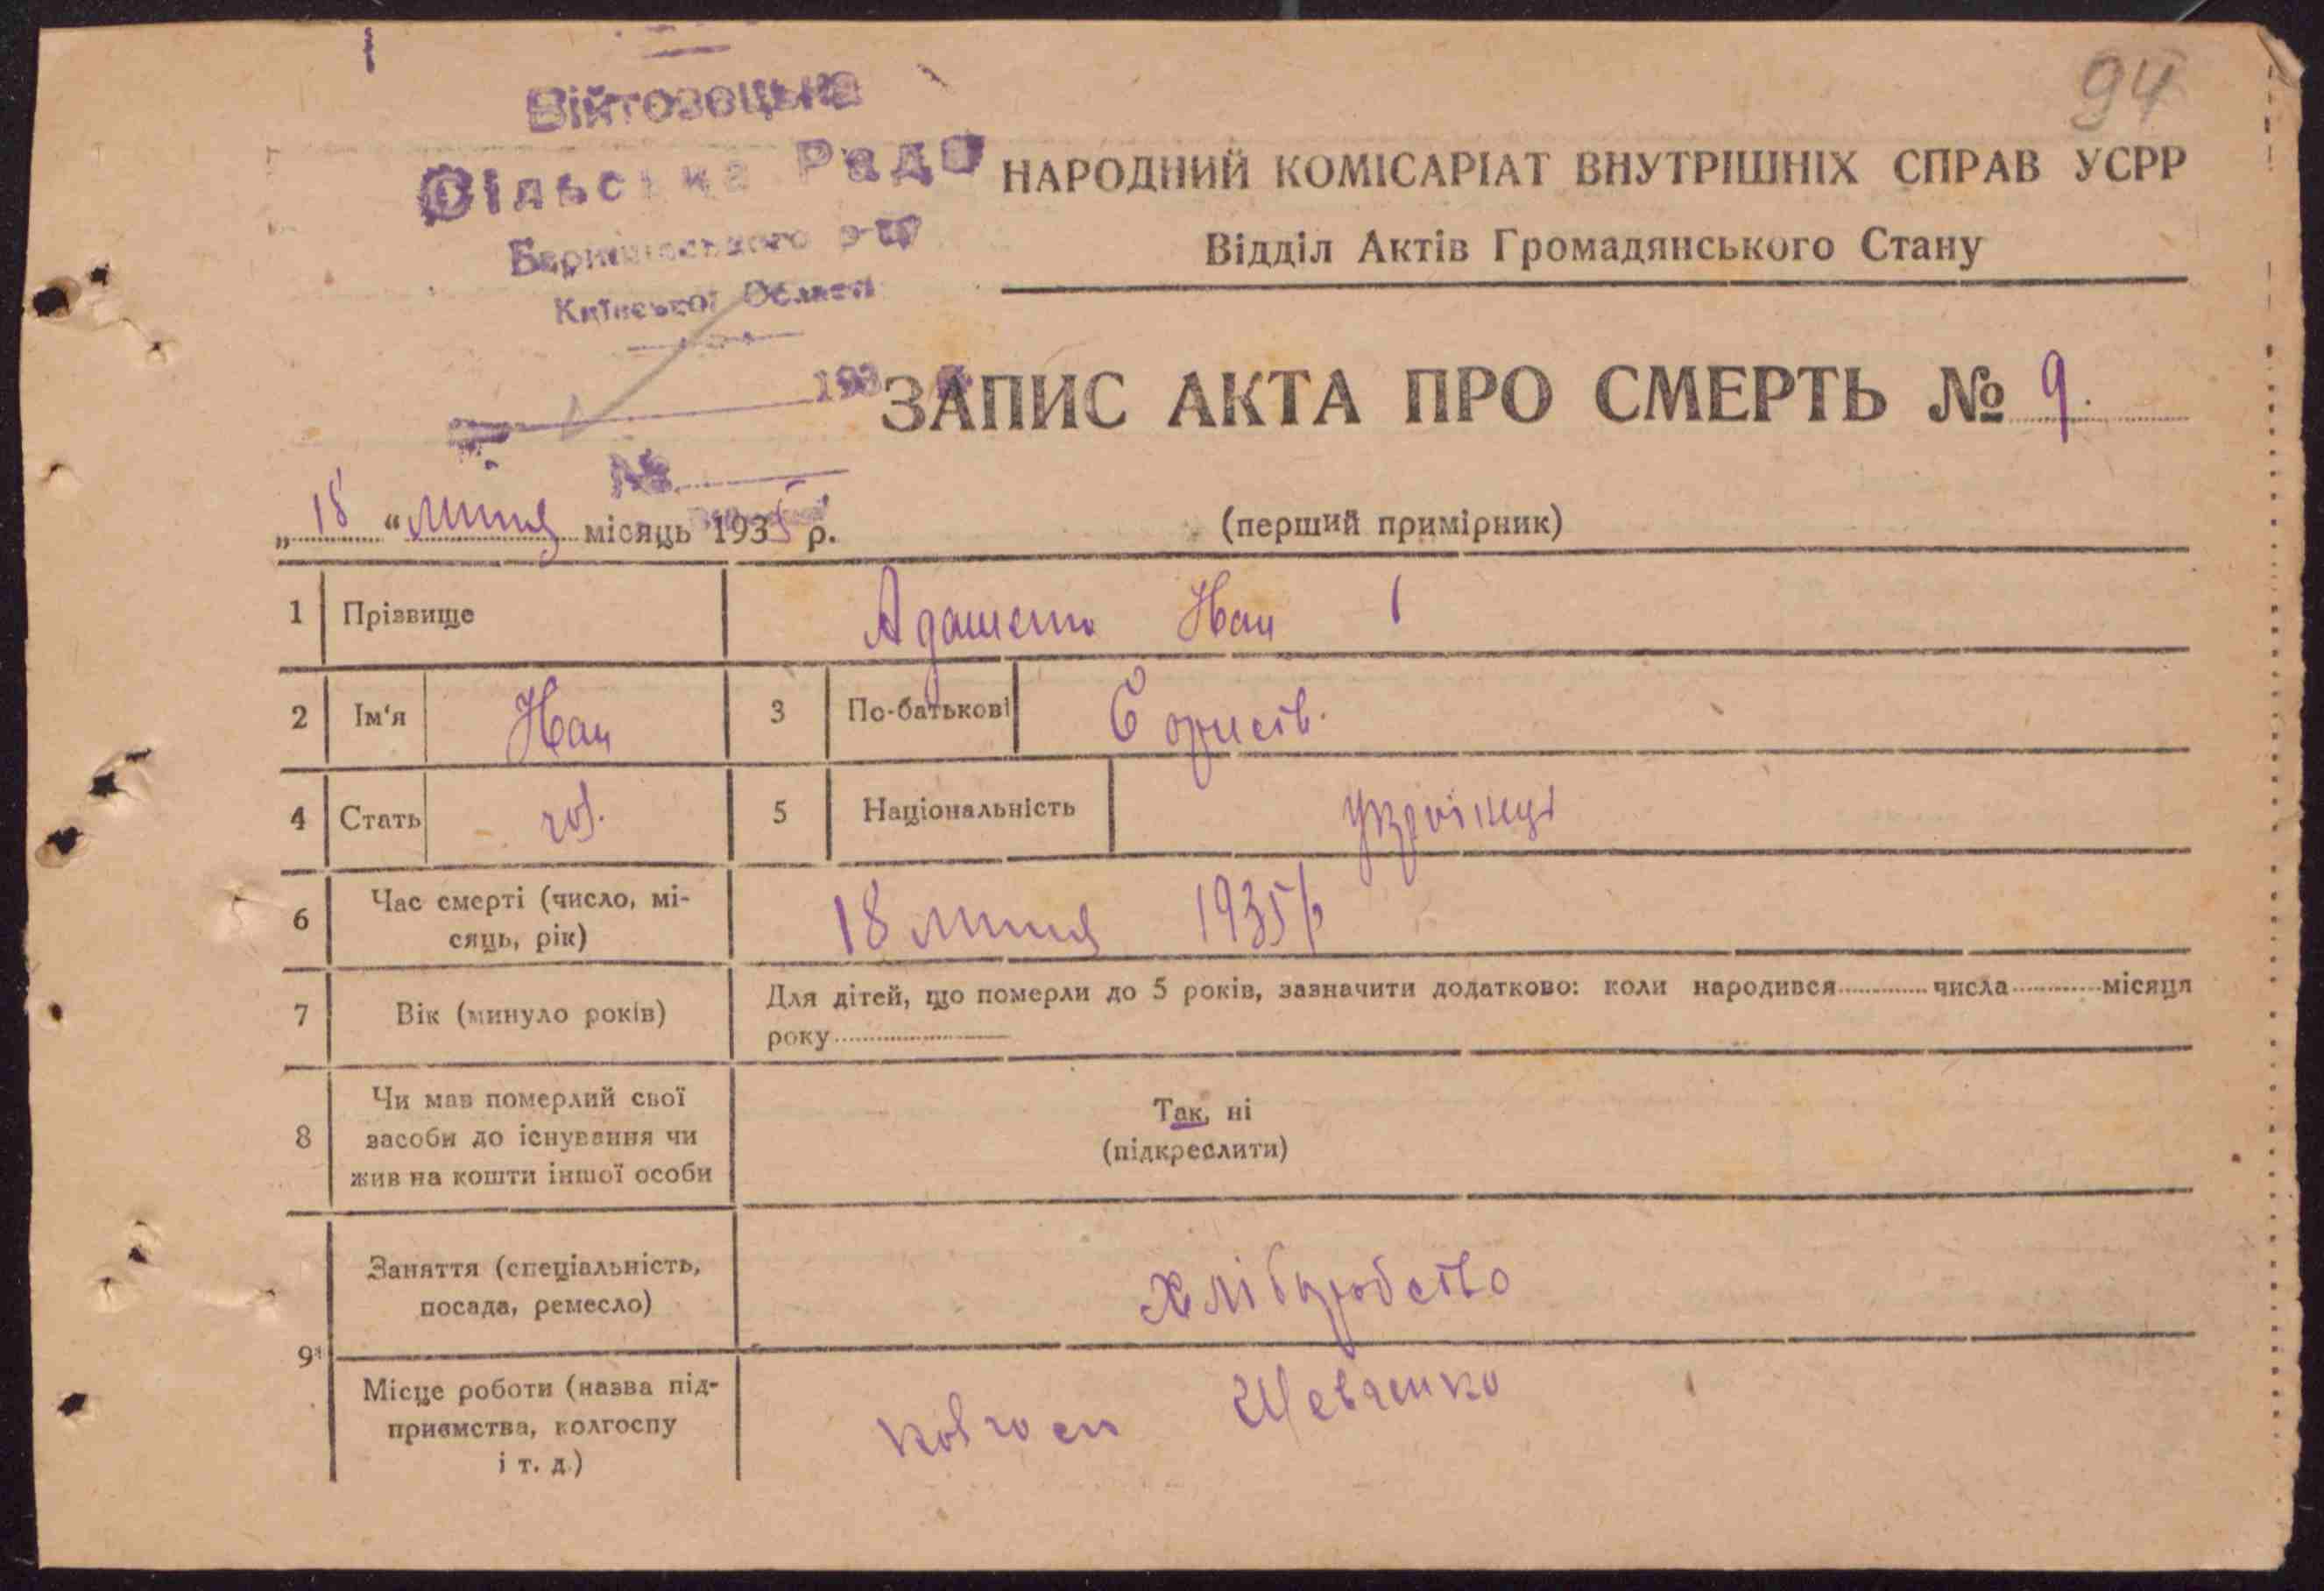 94
Війтовецька
Сільська Рада
Баришівського р-ну
Київської Области
193
№
НАРОДНИЙ КОМІСАРІАТ ВНУТРІШНІХ СПРАВ УСРР
Відділ Актів Громадянського Стану
ЗАПИС АКТА ПРО СМЕРТЬ № 9.
„ 18 “ липня місяць 1935 р.
(перший примірник)
1 Прізвище Адаменко Иван
2 Ім'я Иван 3 По-батькові Борисов.
4 Стать чол. 5 Національність українець
6 Час смерті (число, мі-
сяць, рік) 18 липня 1935 р
7 Вік (минуло років) Для дітей, що померли до 5 років, зазначити додатково: коли народився числа місяця
року
8 Чи мав померлий свої
засоби до існування чи
жив на кошти іншої особи
Так, ні
(підкреслити)
Заняття (спеціальність,
посада, ремесло) хліборобство
9
Місце роботи (назва під-
приємства, колгоспу
і т. д.) колгосп Шевченко